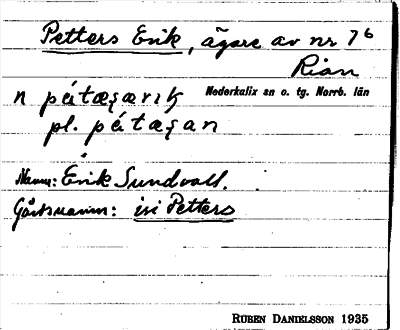 Petters Erik, ägare av nr 7⁶
Rian
n pétæʂærɩk Nederkalix sn o. tg. Norrb. län
pl. pétæʂan
Namn: Erik Sundvall.
Gårdsnamn: isi Petters
RUBEN DANIELSSON 1935